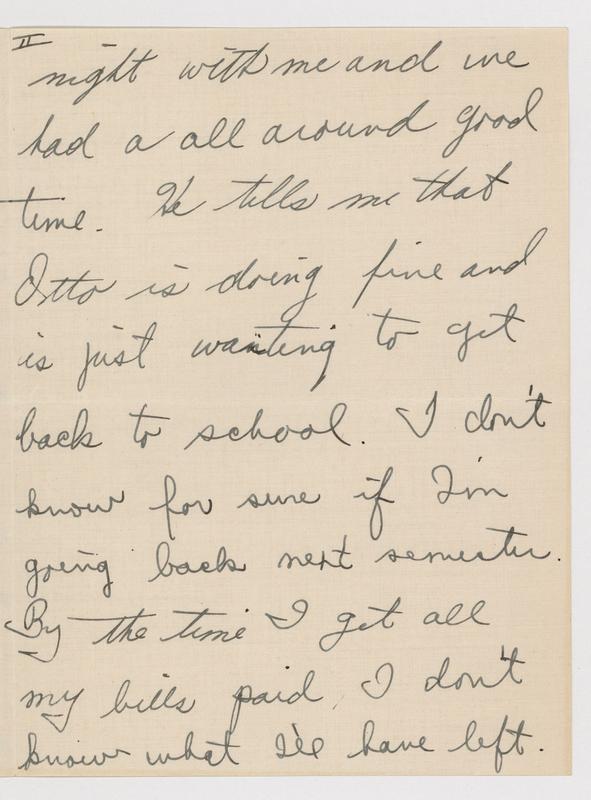 II
night with me and we
had a all around good
time. He tells me that
Otto is doing fine and
is just wanting to get
back to school. I don't
know for sure if I'm
going back next semester.
By the time I get all
my bills paid, I don't
know what I'll have left.